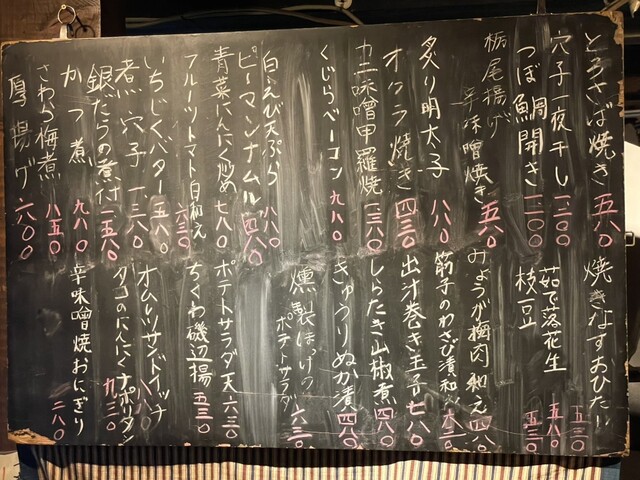 とろさば焼き 五八〇
穴子一夜干し 一二〇〇
つぼ鯛開き 一一〇〇
栃尾揚げ辛味噌焼き 五八〇
炙り明太子 八八〇
オクラ焼き 四三〇
カニ味噌甲羅焼 一三六〇
くじらベーコン 九八〇
白えび天ぷら 八八〇
ピーマンナムル 四八〇
青菜にんにく炒め 七八〇
フルーツトマト白和え 六三〇
いちじくバター 五八〇
煮穴子 一三八〇
銀だらの煮付 一五八〇
かつ煮 九八〇
さわら梅煮 八五〇
厚揚げ 六〇〇
焼きなすおひたし 五三〇
茹で落花生 五八〇
枝豆 五三〇
みょうが梅肉和え 四八〇
筋子のわさび漬和え 六三〇
出汁巻き玉子 七八〇
しらたき山椒煮 四八〇
きゅうりぬか漬 四八〇
燻製ほっけのポテトサラダ 六三〇
ポテトサラダ天 六三〇
ちくわ磯辺揚 五三〇
オムレツサンドイッチ 八八〇
タコのにんにくナポリタン 九三〇
辛味噌焼おにぎり 二八〇